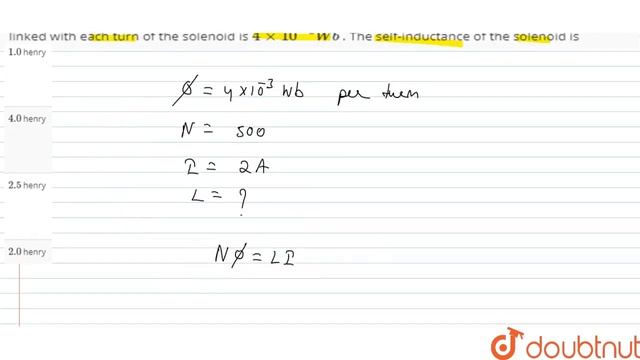 linked with each turn of the solenoid is 4 × 10⁻ Wb. The self-inductance of the solenoid is
1.0 henry
4.0 henry
2.5 henry
2.0 henry
ϕ = 4 × 10⁻³ Wb per turn
N = 500
I = 2A
L = ?
Nϕ = LI
doubtnut